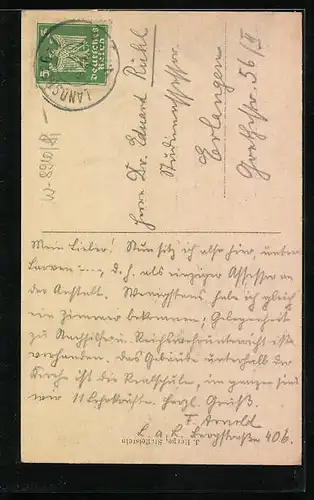 5
Deutsches Reich
LANDS
W-8910/81
Herrn Dr. Eduard Rühl
Studienprofessor
Erlangen
Goethestr. 56/II
Mein Lieber! Nun sitz ich also hier, unter
Larven ... d. h. als einziger Assessor an
der Anstalt. Wenigstens habe ich gleich
ein Zimmer bekommen; Gelegenheit
zu Nachhilfe- u. Reichswehrunterricht ist
vorhanden. Das Gebäude unterhalb der
Kirche ist die Realschule, im ganzen sind
wir 11 Lehrkräfte. Herzl. Gruß.
F. Arnold
L. a. L. Bergstraße 406.
J. Herzer, Staffelstein